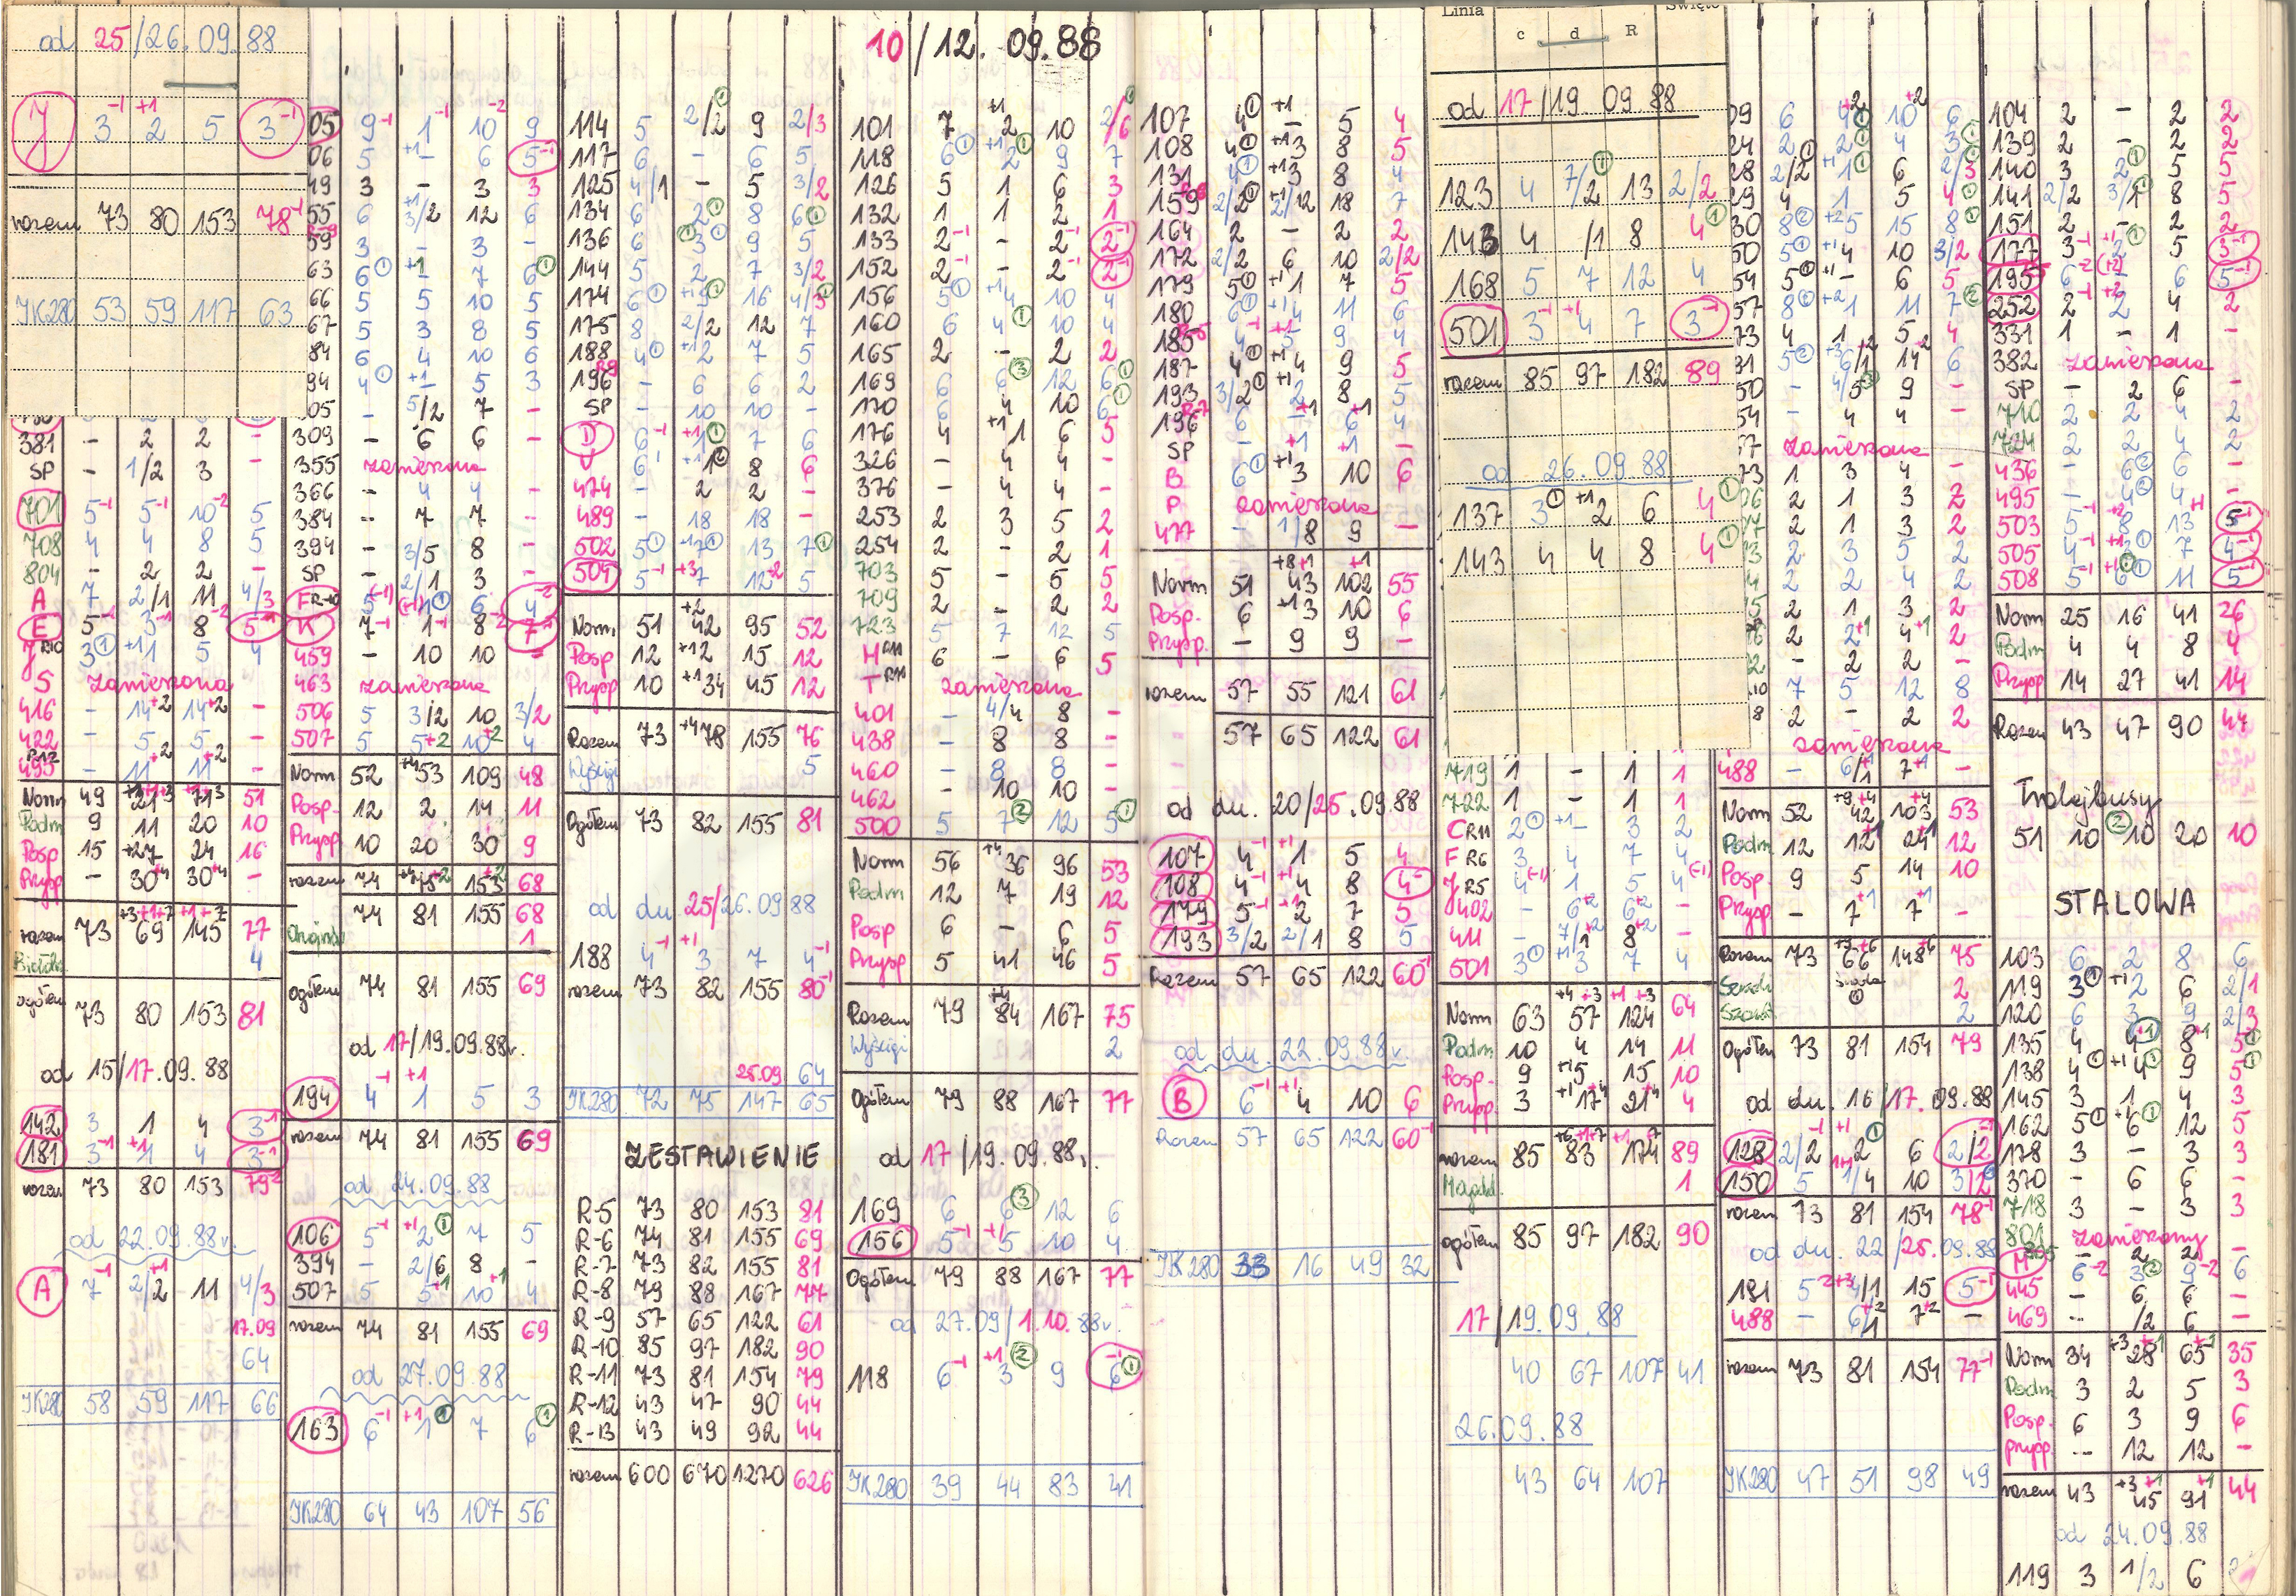 od 25/26.09.88
J 3⁻¹ ⁺¹2 5 3⁻¹
razem 73 80 153 78⁻¹
JK280 53 59 117 63
381 - 2 2 -
SP - 1/2 3 -
701 5⁻¹ 5⁻¹ 10⁻² 5
708 4 4 8 5
804 - 2 2 -
A 7 2/1 11 4/3
E 5⁻¹ 3⁻¹ 8⁻² 5⁻¹
S zawieszona
416 - 14⁺² 14⁺² -
422 - 5 5 -
Podm 9 11 20 10
razem 73 69 145 77
ogółem 73 80 153 81
od 15/17.09.88
142 3 1 4 3⁻¹
181 3⁻¹ ⁺¹1 4 3⁻¹
razem 73 80 153 79⁻²
od 22.09.88r.
A 7⁻¹ 2/⁺¹2 11 4/3
17.09
64
JK280 58 59 117 66
05 9⁻¹ 1⁻¹ 10⁻² 9
06 5 ⁺¹- 6 5⁻¹
49 3 - 3 3
55 6 3/⁺¹2 12 6
59 3 - 3 -
63 6① ⁺¹ 7 6①
66 5 5 10 5
67 5 3 8 5
84 6 4 10 6
94 4① ⁺¹- 5 3
05 - 5/2 7 -
309 - 6 6 -
355 zawieszona
366 - 4 4 -
384 - 7 7 -
394 - 3/5 8 -
SP - 2/1 3 -
K 7⁻¹ 1⁻¹ 8⁻² 7⁻¹
459 - 10 10 -
463 zawieszona
506 5 3/2 10 3/2
507 5 5⁺² 10⁺² 4
Norm 52 53 109 48
Posp. 12 2 14 11
Przysp 10 20 30 9
razem 74 75 153 68
74 81 155 68
1
ogółem 74 81 155 69
od 17/19.09.88r.
194 4⁻¹ ⁺¹1 5 3
razem 74 81 155 69
od 24.09.88
106 5⁻¹ ⁺¹2① 7 5
394 - 2/6 8 -
507 5 5⁺¹ 10⁺¹ 4
razem 74 81 155 69
od 27.09.88
163 6⁻¹ ⁺¹1① 7 6①
JK280 64 43 107 56
114 5 2/2① 9 2/3
117 6 - 6 5
125 4/1 - 5 3/2
134 6 2① 8 6①
136 6 ①3① 9 5
144 5 2 7 3/2
174 6① ⁺¹9① 16 4/3①
175 8 2/2 12 7
188 4① ⁺¹2 7 5
196 - 6 6 2
SP - 10 10 -
D 6⁻¹ ⁺¹1① 7 6
474 - 2 2 -
489 - 18 18 -
502 5① ⁺¹7① 13 7①
504 5⁻¹ ⁺³7 12⁺² 5
Norm. 51 ⁺²42 95 52
Posp 12 ⁺¹2 15 12
Przysp 10 ⁺¹34 45 12
Razem 73 ⁺⁴78 155 76
Wyścigi 5
Ogółem 73 82 155 81
od dn. 25/26.09 88
188 4⁻¹ ⁺¹3 7 4⁻¹
razem 73 82 155 80⁻¹
25.09 64
JK280 72 75 147 65
ZESTAWIENIE
R-5 73 80 153 81
R-6 74 81 155 69
R-7 73 82 155 81
R-8 79 88 167 77
R-9 57 65 122 61
R-10 85 97 182 90
R-11 73 81 154 79
R-12 43 47 90 44
R-13 43 49 92 44
razem 600 670 1270 626
10/12. 09.88
101 7 ⁺¹2 10 2/6①
118 6① ⁺¹2① 9 7
126 5 1 6 3
132 1 1 2 1
133 2⁻¹ - 2⁻¹ 2⁻¹
152 2⁻¹ - 2⁻¹ 2⁻¹
156 5① ⁺¹4 10 4
160 6 4① 10 4
165 2 - 2 2
169 6 6③ 12 6①
170 6 4 10 6①
176 4 ⁺¹1 6 5
326 - 4 4 -
376 - 4 4 -
253 2 3 5 2
254 2 - 2 1
703 5 - 5 5
709 2 - 2 2
723 5 7 12 5
H R11 6 - 6 5
T R11 zawieszona
401 - 4/4 8 -
438 - 8 8 -
460 - 8 8 -
462 - 10 10 -
500 5 7② 12 5①
Norm 56 ⁺⁴36 96 53
Podm 12 7 19 12
Posp 6 - 6 5
Przysp 5 41 46 5
Razem 79 ⁺⁴84 167 75
Wyścigi 2
Ogółem 79 88 167 77
od 17/19.09.88r.
169 6 6③ 12 6
156 5⁻¹ ⁺¹5 10 4
Ogółem 79 88 167 77
od 27.09/1.10.88r.
118 6⁻¹ ⁺¹3② 9 6⁻¹①
JK280 39 44 83 41
107 4① ⁺¹- 5 4
108 4① ⁺¹3 8 5
131 4① ⁺¹3 8 4
159 2/2① ⁺¹2/12 18 7
164 2 - 2 2
172 2/2 6 10 2/2
179 5① ⁺¹1 7 5
180 6① ⁺¹4 11 6
185 4⁻¹ ⁺¹5 9 4
187 4① ⁺¹4 9 5
193 3/2① ⁺¹2 8 5
196 6 -⁺¹ 6⁺¹ 4
SP - ⁺¹ ⁺¹ -
B 6① ⁺¹3 10 6
P zawieszona
477 - 1/8 9 -
Norm 51 ⁺⁸⁺¹43 102⁺¹ 55
Posp. 6 ⁺¹3 10 6
Przysp. - 9 9 -
razem 57 55 121 61
57 65 122 61
od dn. 20/25.09.88
107 4⁻¹ ⁺¹1 5 4
108 4⁻¹ ⁺¹4 8 4⁻¹
179 5⁻¹ ⁺¹2 7 5
193 3/2 2/1 8 5
Razem 57 65 122 60⁻¹
od dn. 22.09.88r.
B 6⁻¹ ⁺¹4 10 6
Razem 57 65 122 60⁻¹
JK280 33 16 49 32
Linia c d R Święto
od 17/19.09.88
123 4 7/2① 13 2/2
143 4 /1 8 4①
168 5 7 12 4
501 3⁻¹ ⁺¹4 7 3⁻¹
razem 85 97 182 89
od 26.09.88
137 3① ⁺¹2 6 4①
143 4 4 8 4①
719 1 - 1 1
722 1 - 1 1
C R11 2① ⁺¹- 3 2
F R6 3 4 7 4
J R5 4(⁻¹) 1 5 4(⁻¹)
402 - 6⁺² 6⁺² -
411 - 7/1⁺² 8⁺² -
501 3① ⁺¹3 7 4
Norm 63 ⁺⁴⁺³57 ⁺¹⁺³124 64
Podm 10 4 14 11
Posp. 9 ⁺¹5 15 10
Przysp. 3 ⁺¹17⁺⁴ 21⁺⁴ 4
razem 85 83 174 89
1
ogółem 85 97 182 90
17/19.09.88
40 67 107 41
26.09.88
43 64 107
29 4 1 5 4①
30 8② ⁺²5 15 8①
50 5① ⁺¹4 10 3/2
54 5① ⁺¹- 6 5
57 8② ⁺²1 11 7②
54 - 4 4 -
zawieszona
73 1 3 4 -
06 2 1 3 2
2 1 3 2
2 3 5 2
2 2 4 2
2 1 3 2
2 2⁺¹ 4⁺¹ 2
- 2 2 -
7 5 12 8
8 2 - 2 2
zawieszona
488 - 6/1⁺¹ 7⁺¹ -
Norm 52 ⁺⁹⁺⁴42 103⁺⁴ 53
Podm 12 12⁺¹ 24⁺¹ 12
Posp. 9 5 14 10
Przysp. - 7⁺¹ 7⁺¹ -
Razem 73 66 148⁺⁶ 75
2
2
Ogółem 73 81 154 79
od dn. 16/17.09.88
128 2/2⁻¹ ⁺¹2① 6 2/2⁻¹
150 5 1/4 10 3/2
razem 73 81 154 78⁻¹
od dn. 22/25.09.88
191 5⁻² ⁺³4/1 15 5⁻¹
488 - 6/1⁺² 7⁺² -
razem 73 81 154 77⁻¹
JK280 47 51 98 49
104 2 - 2 2
139 2 - 2 2
140 3 2① 5 5
141 2/2 3/1① 8 5
151 2 - 2 2
177 3⁻¹ ⁺¹2① 5 3⁻¹
195 6⁻² (⁺²)- 6 5⁻¹
252 2⁻¹ ⁺²2 4 2
331 1 - 1 -
382 zawieszona
SP - 2 6 -
710 2 2 4 2
724 2 2 4 2
436 - 6② 6 -
495 - 4② 4 -
503 5⁻¹ ⁺²8 13⁺¹ 5⁻¹
505 4⁻¹ ⁺¹3 7 4⁻¹
508 5⁻¹ ⁺¹6① 11 5⁻¹
Norm 25 16 41 26
Podm 4 4 8 4
Przysp 14 27 41 14
Razem 43 47 90 44
Trolejbusy
51 10 ②10 20 10
STALOWA
103 6 2 8 6
119 3① ⁺¹2 6 2/1
120 6 3 9 2/3
135 4 4⁺¹ 8⁺¹ 5①
138 4① ⁺¹4① 9 5①
145 3 1 4 3
162 5① ⁺¹6① 12 5
178 3 - 3 3
370 - 6 6 -
718 3 - 3 3
801 zawieszony
M 6⁻² 3② 9⁻² 6
445 - 6 6 -
469 - /2 6 -
Norm 34 ⁺³28⁺¹ 65⁺¹ 35
Podm 3 2 5 3
Posp. 6 3 9 6
Przysp. - 12 12 -
razem 43 ⁺³45⁺¹ 91⁺¹ 44
od 24.09.88
119 3 1/2 6 2